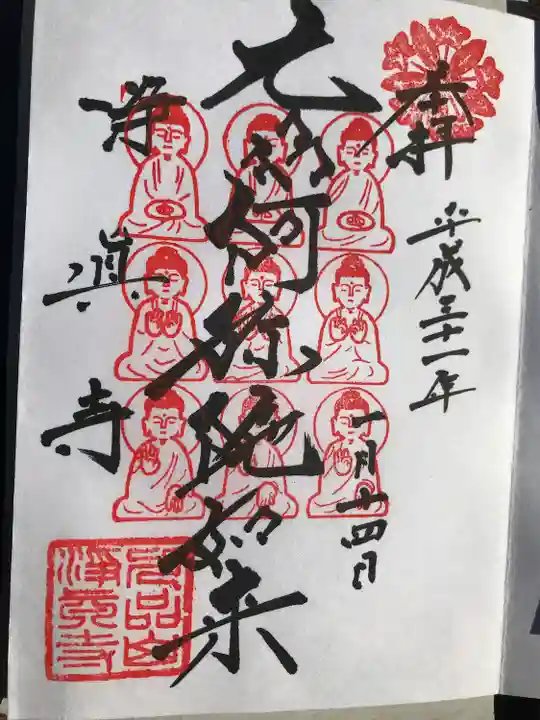 奉拝
平成三十一年
一月十四日
九躰阿弥陀如来
浄真寺
九品山
淨真寺